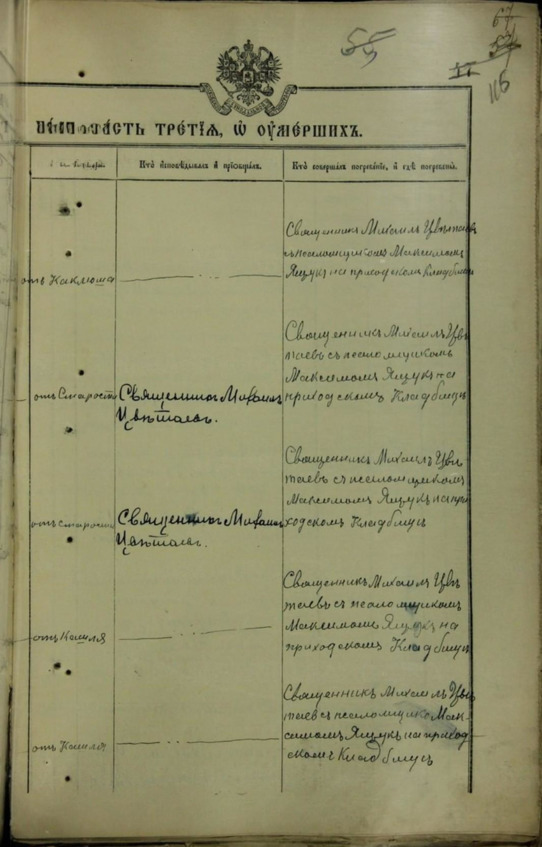 55
67
115
ЧАСТЬ ТРЕТІЯ, Ѡ ОУМЕРШИХЪ.
Кто исповѣдывалъ и пріобщалъ.
Кто совершалъ погребеніе, и гдѣ погребены.
Священникъ Михаилъ Цвѣтаевъ
съ псаломщикомъ Максимомъ
Ящукъ на приходскомъ кладбищѣ
отъ Коклюша
Священникъ Михаилъ Цвѣ
таевъ съ псаломщикомъ
Максимомъ Ящукъ на
приходскомъ Кладбищѣ
отъ Старости
Священникъ Михаилъ
Цвѣтаевъ.
Священникъ Михаилъ Цвѣ
таевъ съ псаломщикомъ
Максимомъ Ящукъ на при
ходскомъ Кладбищѣ
отъ старости
Священникъ Михаилъ
Цвѣтаевъ.
Священникъ Михаилъ Цвѣ
таевъ съ псаломщикомъ
Максимомъ Ящукъ на
приходскомъ Кладбищѣ
отъ Кашля
Священникъ Михаилъ Цвѣ
таевъ съ псаломщико Мак-
симомъ Ящукъ на приход
скомъ Кладбищѣ
отъ Кашля